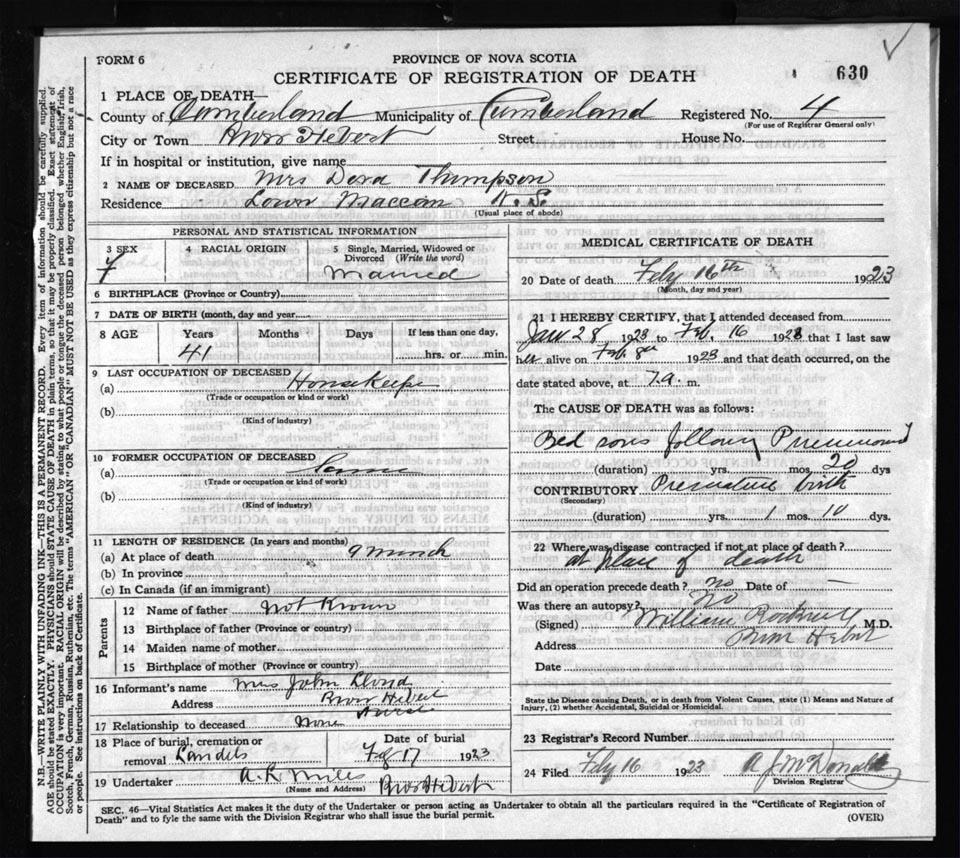 FORM 6
PROVINCE OF NOVA SCOTIA
CERTIFICATE OF REGISTRATION OF DEATH
630
1 PLACE OF DEATH—
County of Cumberland Municipality of Cumberland Registered No. 4
(For use of Registrar General only)
City or Town River Hebert Street House No.
If in hospital or institution, give name
2 NAME OF DECEASED Mrs Dora Thompson
Residence Lower Maccan N.S.
(Usual place of abode)
PERSONAL AND STATISTICAL INFORMATION
3 SEX 4 RACIAL ORIGIN 5 Single, Married, Widowed or Divorced (Write the word)
F Married
6 BIRTHPLACE (Province or Country)
7 DATE OF BIRTH (month, day and year)
8 AGE Years Months Days If less than one day,
41 hrs. or min.
9 LAST OCCUPATION OF DECEASED
(a) Housekeeper
(Trade or occupation or kind or work)
(b)
(Kind of industry)
10 FORMER OCCUPATION OF DECEASED
(a) Same
(Trade or occupation or kind or work)
(b)
(Kind of industry)
11 LENGTH OF RESIDENCE (In years and months)
(a) At place of death 9
(b) In province
(c) In Canada (if an immigrant)
Parents
12 Name of father Not Known
13 Birthplace of father (Province or country)
14 Maiden name of mother
15 Birthplace of mother (Province or country)
16 Informant's name Mrs John
Address River Hebert
Nurse
17 Relationship to deceased None
18 Place of burial, cremation or removal Date of burial
Feb 17 1923
19 Undertaker
(Name and Address) River Hebert
MEDICAL CERTIFICATE OF DEATH
20 Date of death Feby 16th 1923
(Month, day and year)
21 I HEREBY CERTIFY, that I attended deceased from
Jan 28 1923 to Feb. 16 1923 that I last saw
her alive on Feb 8th 1923 and that death occurred, on the
date stated above, at 7 a. m.
The CAUSE OF DEATH was as follows:
Bed sores following Pneumonia
(duration) yrs. mos. 20 dys
CONTRIBUTORY Premature birth
(Secondary)
(duration) yrs. 1 mos. 10 dys.
22 Where was disease contracted if not at place of death?
at place of death
Did an operation precede death? no Date of —
Was there an autopsy? No
(Signed) William Rockwell M.D.
Address River Hebert
Date
State the Disease causing Death, or in death from Violent Causes, state (1) Means and Nature of
Injury, (2) whether Accidental, Suicidal or Homicidal.
23 Registrar's Record Number
24 Filed Feby 16 1923 A J McDonald
Division Registrar
SEC. 46—Vital Statistics Act makes it the duty of the Undertaker or person acting as Undertaker to obtain all the particulars required in the "Certificate of Registration of
Death" and to fyle the same with the Division Registrar who shall issue the burial permit.
(OVER)
N.B.—WRITE PLAINLY WITH UNFADING INK—THIS IS A PERMANENT RECORD. Every item of information should be carefully supplied.
AGE should be stated EXACTLY. PHYSICIANS should STATE CAUSE OF DEATH in plain terms, so that it may be properly classified. Exact statement of
OCCUPATION is very important. RACIAL ORIGIN will be described by stating to what people or tongue the deceased person belonged whether English, Irish,
Scotch, French, German, Russian, Ruthenian, etc. The terms "AMERICAN" OR "CANADIAN" MUST NOT BE USED as they express citizenship but not a race
or people. See instructions on back of Certificate.